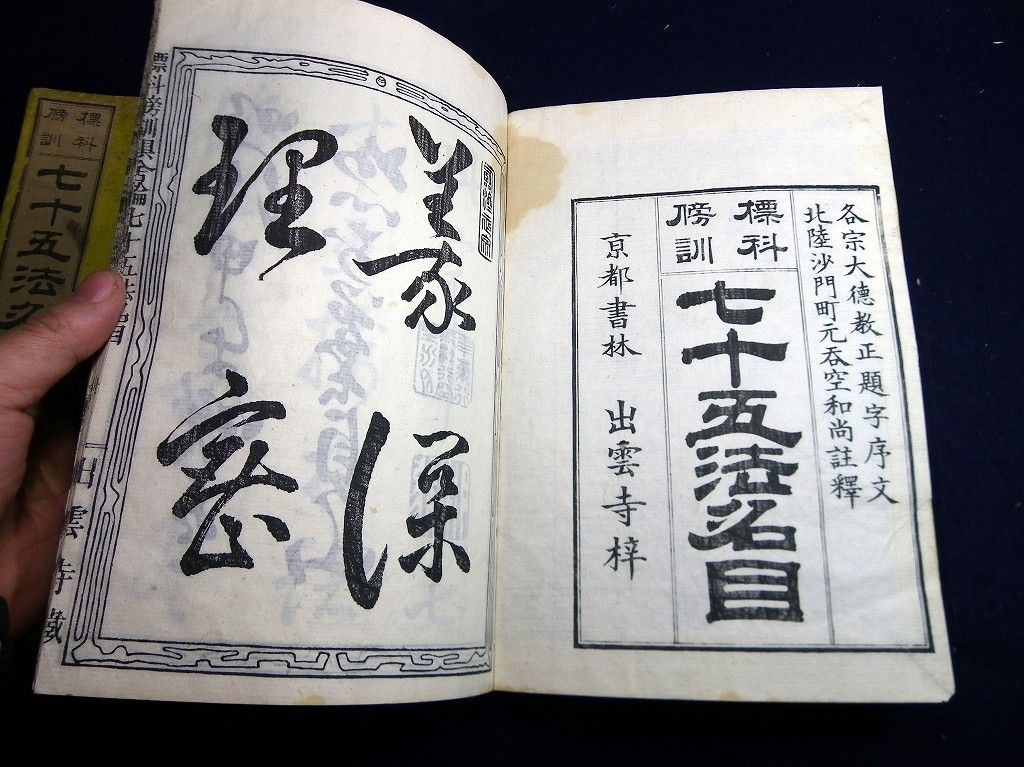 各宗大德教正題字序文
北陸沙門町元呑空和尚註釋
標科
傍訓
七十五法名目
京都書林 出雲寺梓
義深
理密
標科傍訓倶舍論七十五法名目
一
出雲寺藏
標科
傍訓
七十五法名